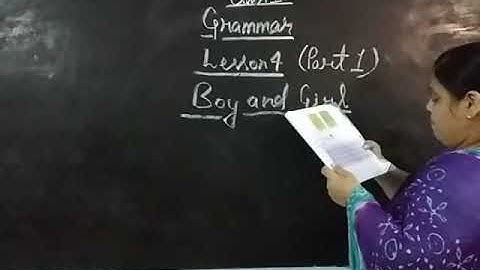 Grammar
Lesson 4 (Part 1)
Boy and Girl